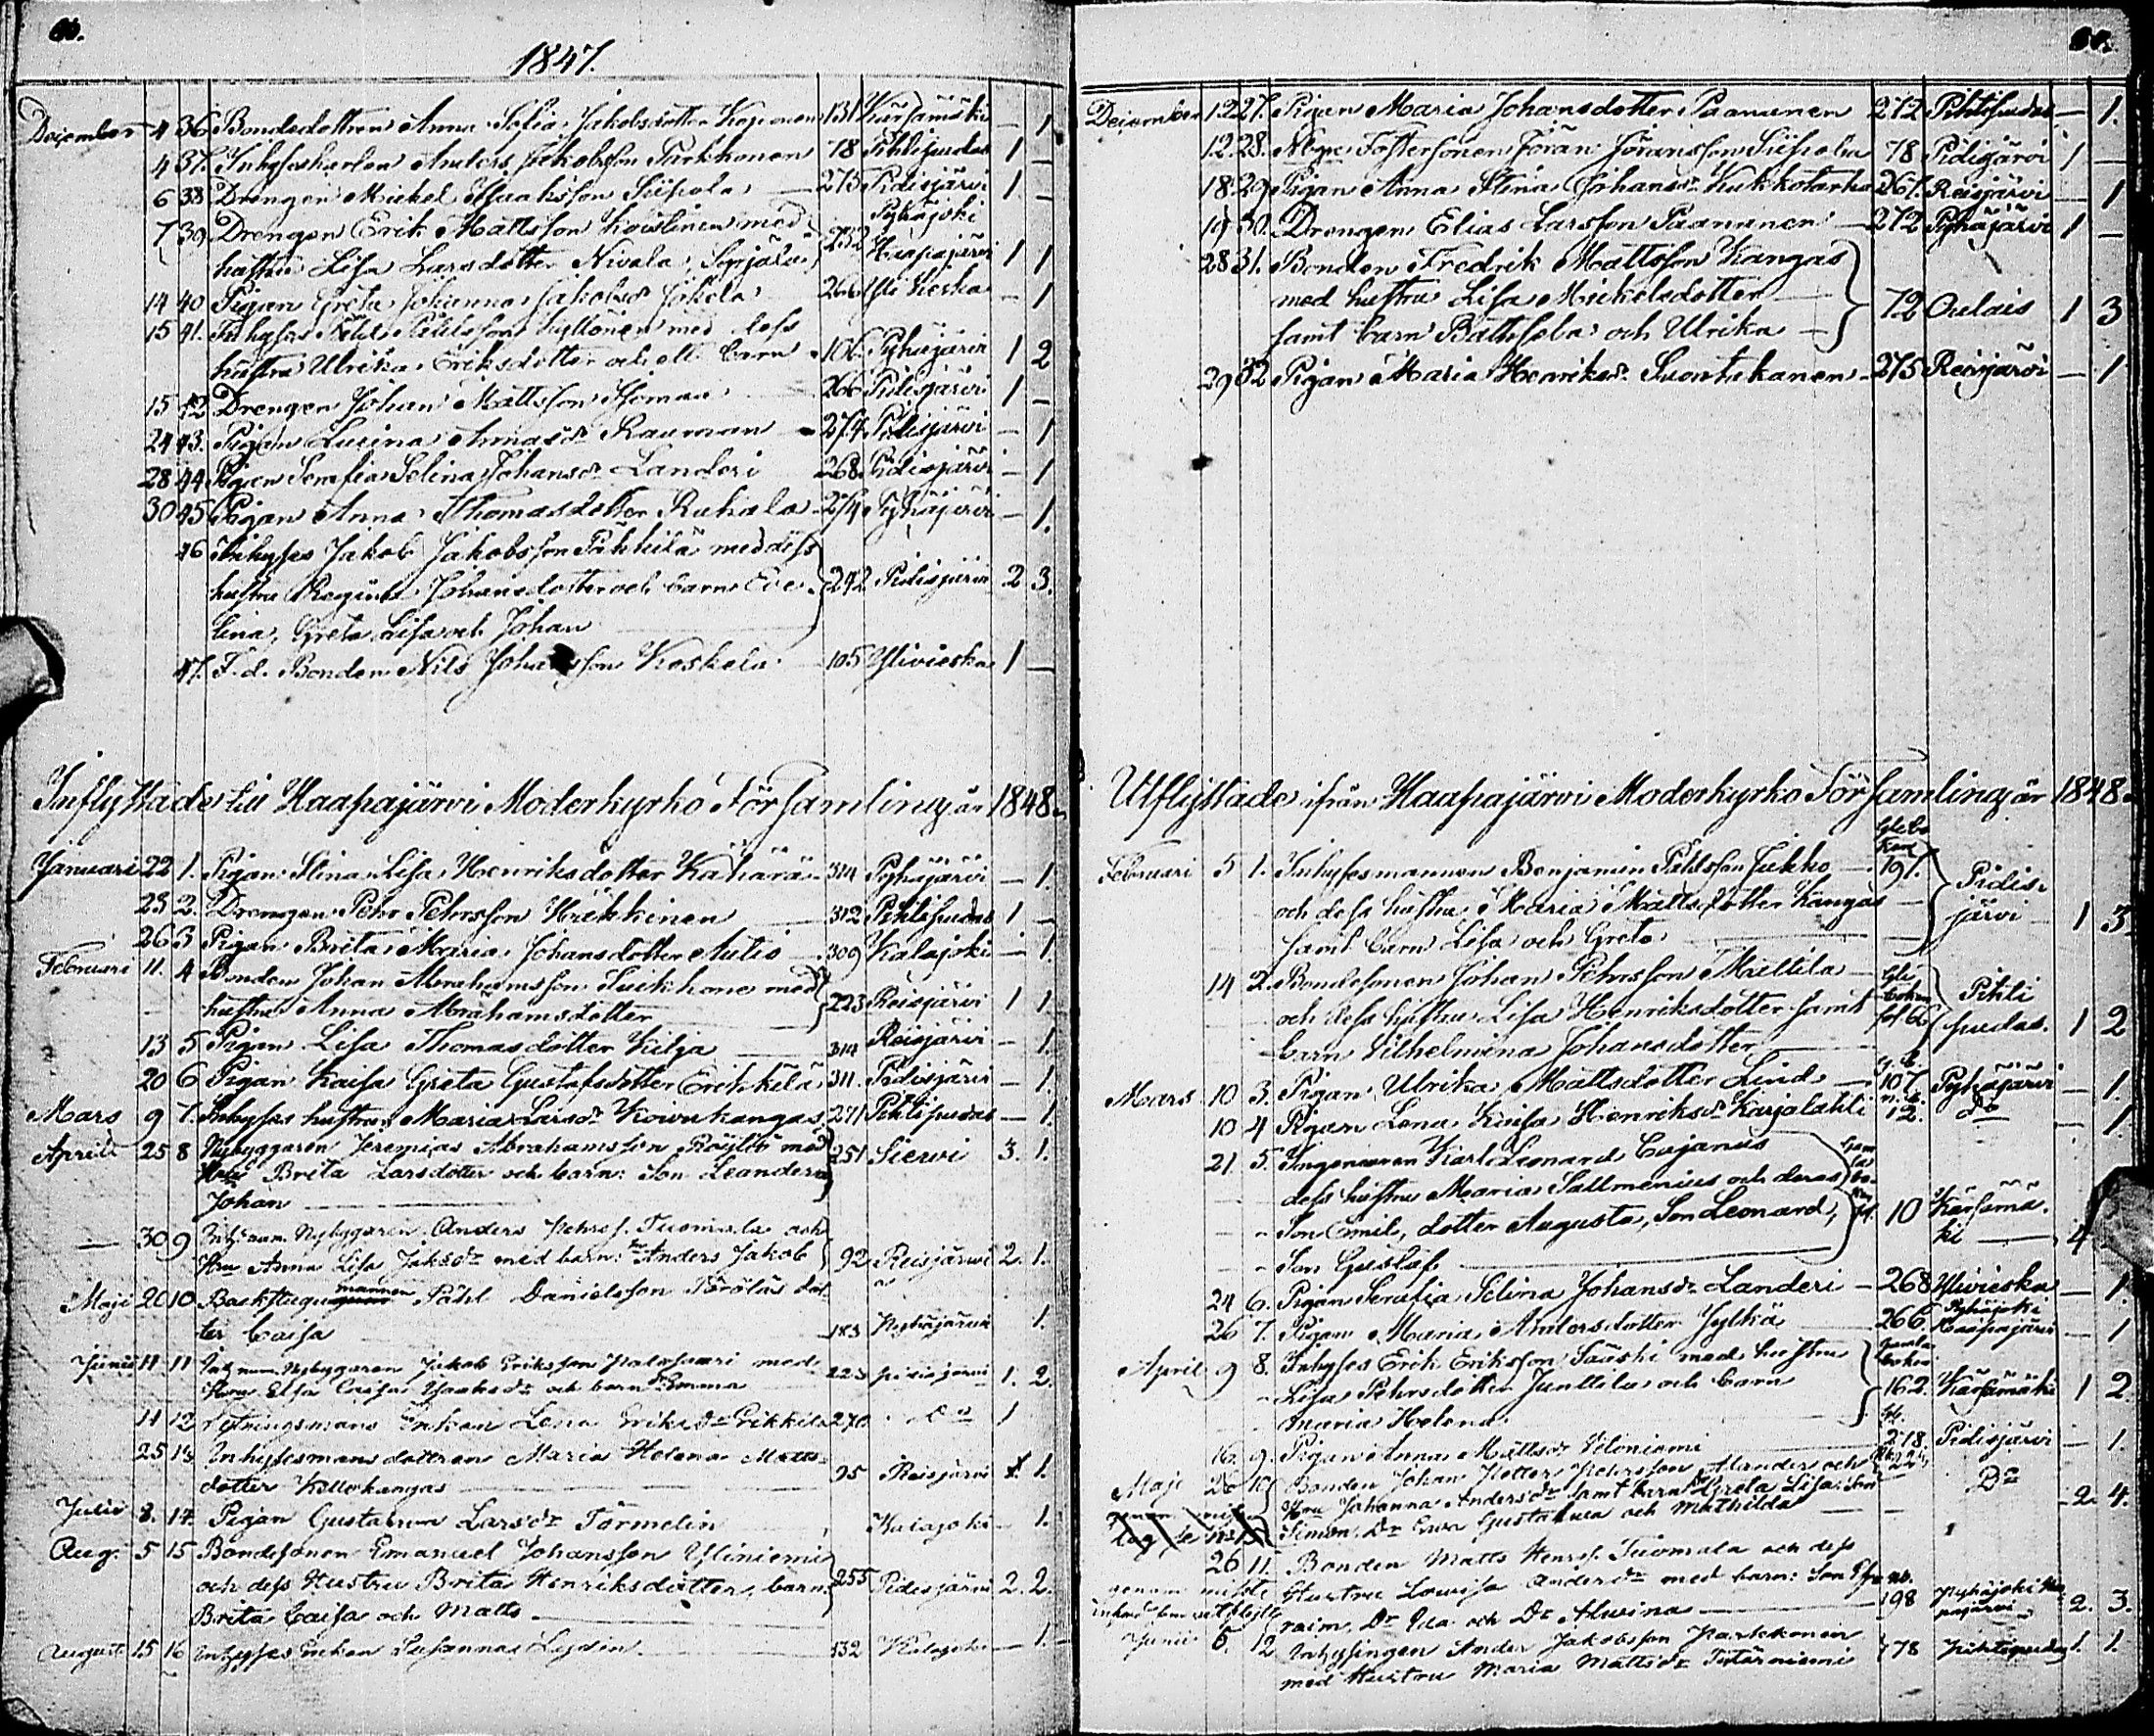 1847.
December 4 36. Bondedottren Anna Sofia Jakobsdotter Koponen 131 Kärsämäki — 1
4 37. Inhyseskarlen Anders Jakobsson Parkkonen 78 Pihtipudas 1 —
6 38 Drengen Mickel Isaaksson Siipola — 275 Pidisjärvi 1 —
7 39. Drengen Erik Mattsson Koistinen med Pyhäjoki
hustru Lisa Larsdotter Nivala, 232 Haapajärvi 1 1
14 40 Pigan Greta Johanna Jakobsdr Jokela 266 Ylivieska — 1
15 41. Inhyses Påhl Påhlsson Kyllönen med dess
hustru Ulrika Eriksdotter och ett barn 106. Pyhäjärvi 1 2
15 42 Drengen Johan Mattsson 266 Pidisjärvi 1 —
24 43. Pigan Lucina Annasdr Rauman — 274 Pidisjärvi — 1
28 44 Pigan Serafia Selina Johansdr Landeri 268. Pidisjärvi — 1
30 45 Pigan Anna Thomasdotter Ruhala — 274 Pyhäjärvi — 1.
46 Inhyses Jakob Jakobsson Pihkilä med dess
hustru Regina Johansdotter och barn Eve- 242 Pidisjärvi 2 3.
lina, Greta Lisa och Johan
47. F. d. Bonden Nils Johansson Koskela — 105 Ylivieska 1 —
Inflyttade till Haapajärvi Moderkyrko Församling år 1848.
Januari 22 1. Pigan Stina Lisa Henriksdotter Kähärä 314 Pyhäjärvi — 1.
23 2. Drengen Pehr Pehrsson Häkkinen 312 Pihtipudas 1 —
26 3 Pigan Brita Maria Johansdotter Autio — 309 Kalajoki — 1
Februari 11. 4 Bonden Johan Abrahamsson Leikkone med
hustru Anna Abrahamsdotter 223 Reisjärvi 1 1
13 5 Pigan Lisa Thomasdotter Kilja 314 Reisjärvi — 1.
20 6 Pigan Kaisa Greta Gustafsdotter Erikkilä 311. Pidisjärvi — 1.
Mars 9 7. Inhyses hustru Maria Larsdr Kowukangas 271 Pihtipudas — 1.
April 25 8 Nybyggaren Jeremias Abrahamsson Röylio med
Hu Brita Larsdotter och barn: Son Leander 251 Sievi 3. 1.
Johan
— 30 9 Nybygaren Anders Pehrss. Tuomala och
Hru Anna Lisa Jaksdr med barn: Anders Jakob 92 Reisjärwi 2. 1.
Maji 20 10 Backstugumannen Påhl Danielsson Törölas dot-
ter Caisa 183 Pyhäjärwi 1.
Junii 11 11 Nybygaren Jakob Eriksson Palosaari med
Hru Elsa Caisa Isaksdr och barn Emma 223 Pidisjärvi 1. 2.
11 12 Rotningsmans Enkan Lena Eriksdr Erikkilä 270 Do 1
25 13 Inhysesmansdottren Maria Helena Matts-
dotter Kellokangas 95 Reisjärvi 1.
Julii 8. 14. Pigan Gustawa Larsdr Törmelin Kalajoki — 1.
Aug. 5 15 Bondesonen Emanuel Johansson Yliniemi
och dess Hustru Brita Henriksdotter, barn 255 Pidisjärvi 2. 2.
Brita Caisa och Matts
Augusti 15 16 Inhyses Enkan Susannas Lydin 132 Kalajoki — 1.
December 12 27. Pigan Maria Johansdotter Paananen 272 Pihtipudas — 1.
12 28. Fostersonen Jöran Jöransson Siipola 78 Pidisjärvi 1 —
18. 29 Pigan Anna Stina Johansdr Kukkotarha 267. Reisjärvi — 1
19 30. Drengen Elias Larsson Paananen — 272 Pyhäjärvi 1 —
28 31. Bonden Fredrik Mattsson Kangas
med hustru Lisa Mickelsdotter
samt barn Bathseba och Ulrika — 72 Oulais 1 3
29 32 Pigan Maria Henriksdr Suontakanen — 275 Reisjärvi — 1
Utflyttade ifrån Haapajärvi Moderkyrko Församling år 1848.
Februari 5 1. Inhysesmannen Benjamin Påhlsson Jukko — 191. Pidis-
och dess hustru Maria Mattsdotter Kangas — järvi 1 3.
samt barn Lisa och Greta
14 2. Bondesonen Johan Pehrsson Mattila — Pihti
och dess hustru Lisa Henriksdotter samt pudas. 1 2
barn Vilhelmina Johansdotter
Mars 10 3. Pigan Ulrika Mattsdotter Lind — 107. Pyhäjärvi — 1.
10 4 Pigan Lena Kaisa Henriksdr Karjalahti 12. do — 1
21. 5. Ingenieuren Karl Leonard Cajanus
dess hustru Maria Sallmenius och deras
Son Emil, dotter Augusta, Son Leonard, 10 Kärsämä-
Son Gustaf ki — 4
24 6. Pigan Serafia Selina Johansdr Landeri — 268 Ylivieska — 1.
26 7. Pigan Maria Andersdotter Jylhä 266 Pyhäjoki Haapajärvi — 1
April 9 8. Inhyses Erik Eriksson Sääski med hustru
Lisa Pehrsdotter Junttila och barn 162. Kärsämäki 1 2.
Maria Helena
16. 9. Pigan Anna Mattsdr Viloniemi 218. Pidisjärvi — 1.
Maji 26 10 Bonden Johan Petter Pehrsson Alander och
Hru Johanna Andersdr samt barn Dr Greta Lisa: Son Do 2. 4.
Simon, Dr Ewa Gustawa och Mathilda
26 11. Bonden Matts Henrss. Tuomala och dess
Hustru Lowisa Andersdr med barn: Son Eph-
raim, Dr Ida och Dr Alwina 198 Pyhäjoki Haapajärvi 2. 3.
Junii 6. 12 Inhysingen Ander Jakobsson Parkkonen
med Hustru Maria Mattsdr Tytärniemi 78 Pihtipudas 1. 1.